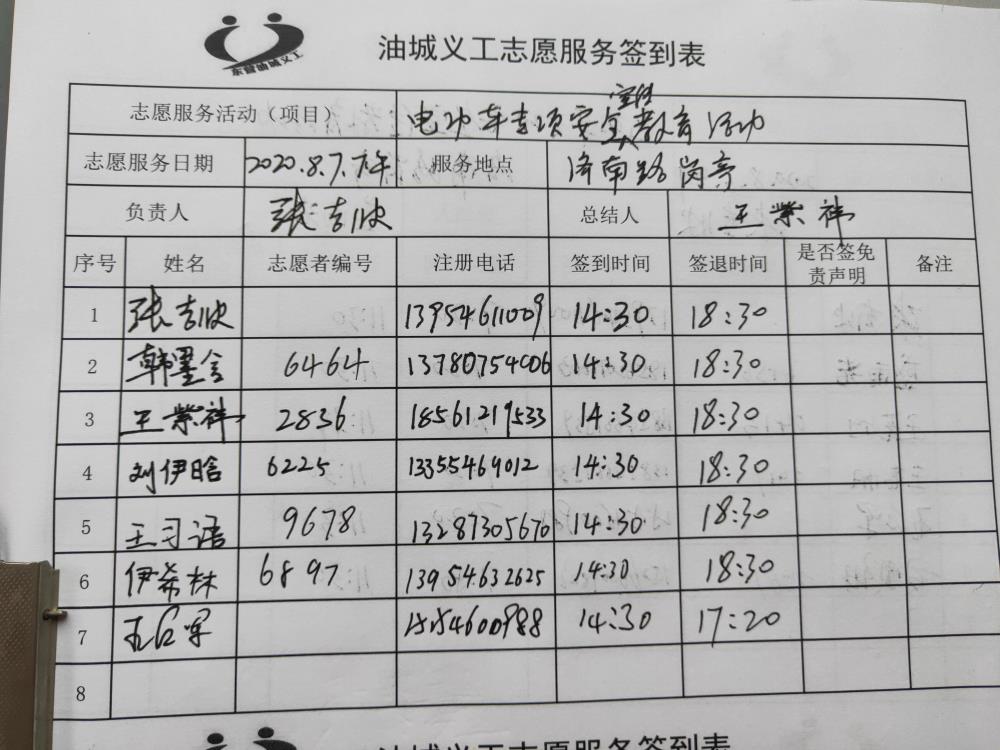 东营油城义工
油城义工志愿服务签到表
志愿服务活动（项目） 电动车专项安全宣传教育活动
志愿服务日期 2020.8.7.下午 服务地点 济南路岗亭
负责人 张吉欣 总结人 王崇祥
序号 姓名 志愿者编号 注册电话 签到时间 签退时间 是否签免责声明 备注
1 张吉欣 13954611009 14:30 18:30
2 韩墨会 6464 13780754006 14:30 18:30
3 王崇祥 2836 18561219533 14:30 18:30
4 刘伊晗 6225 13355469012 14:30 18:30
5 王习语 9678 13287305670 14:30 18:30
6 伊希林 6897 13954632625 14:30 18:30
7 14:30 17:20
8
油城义工志愿服务签到表